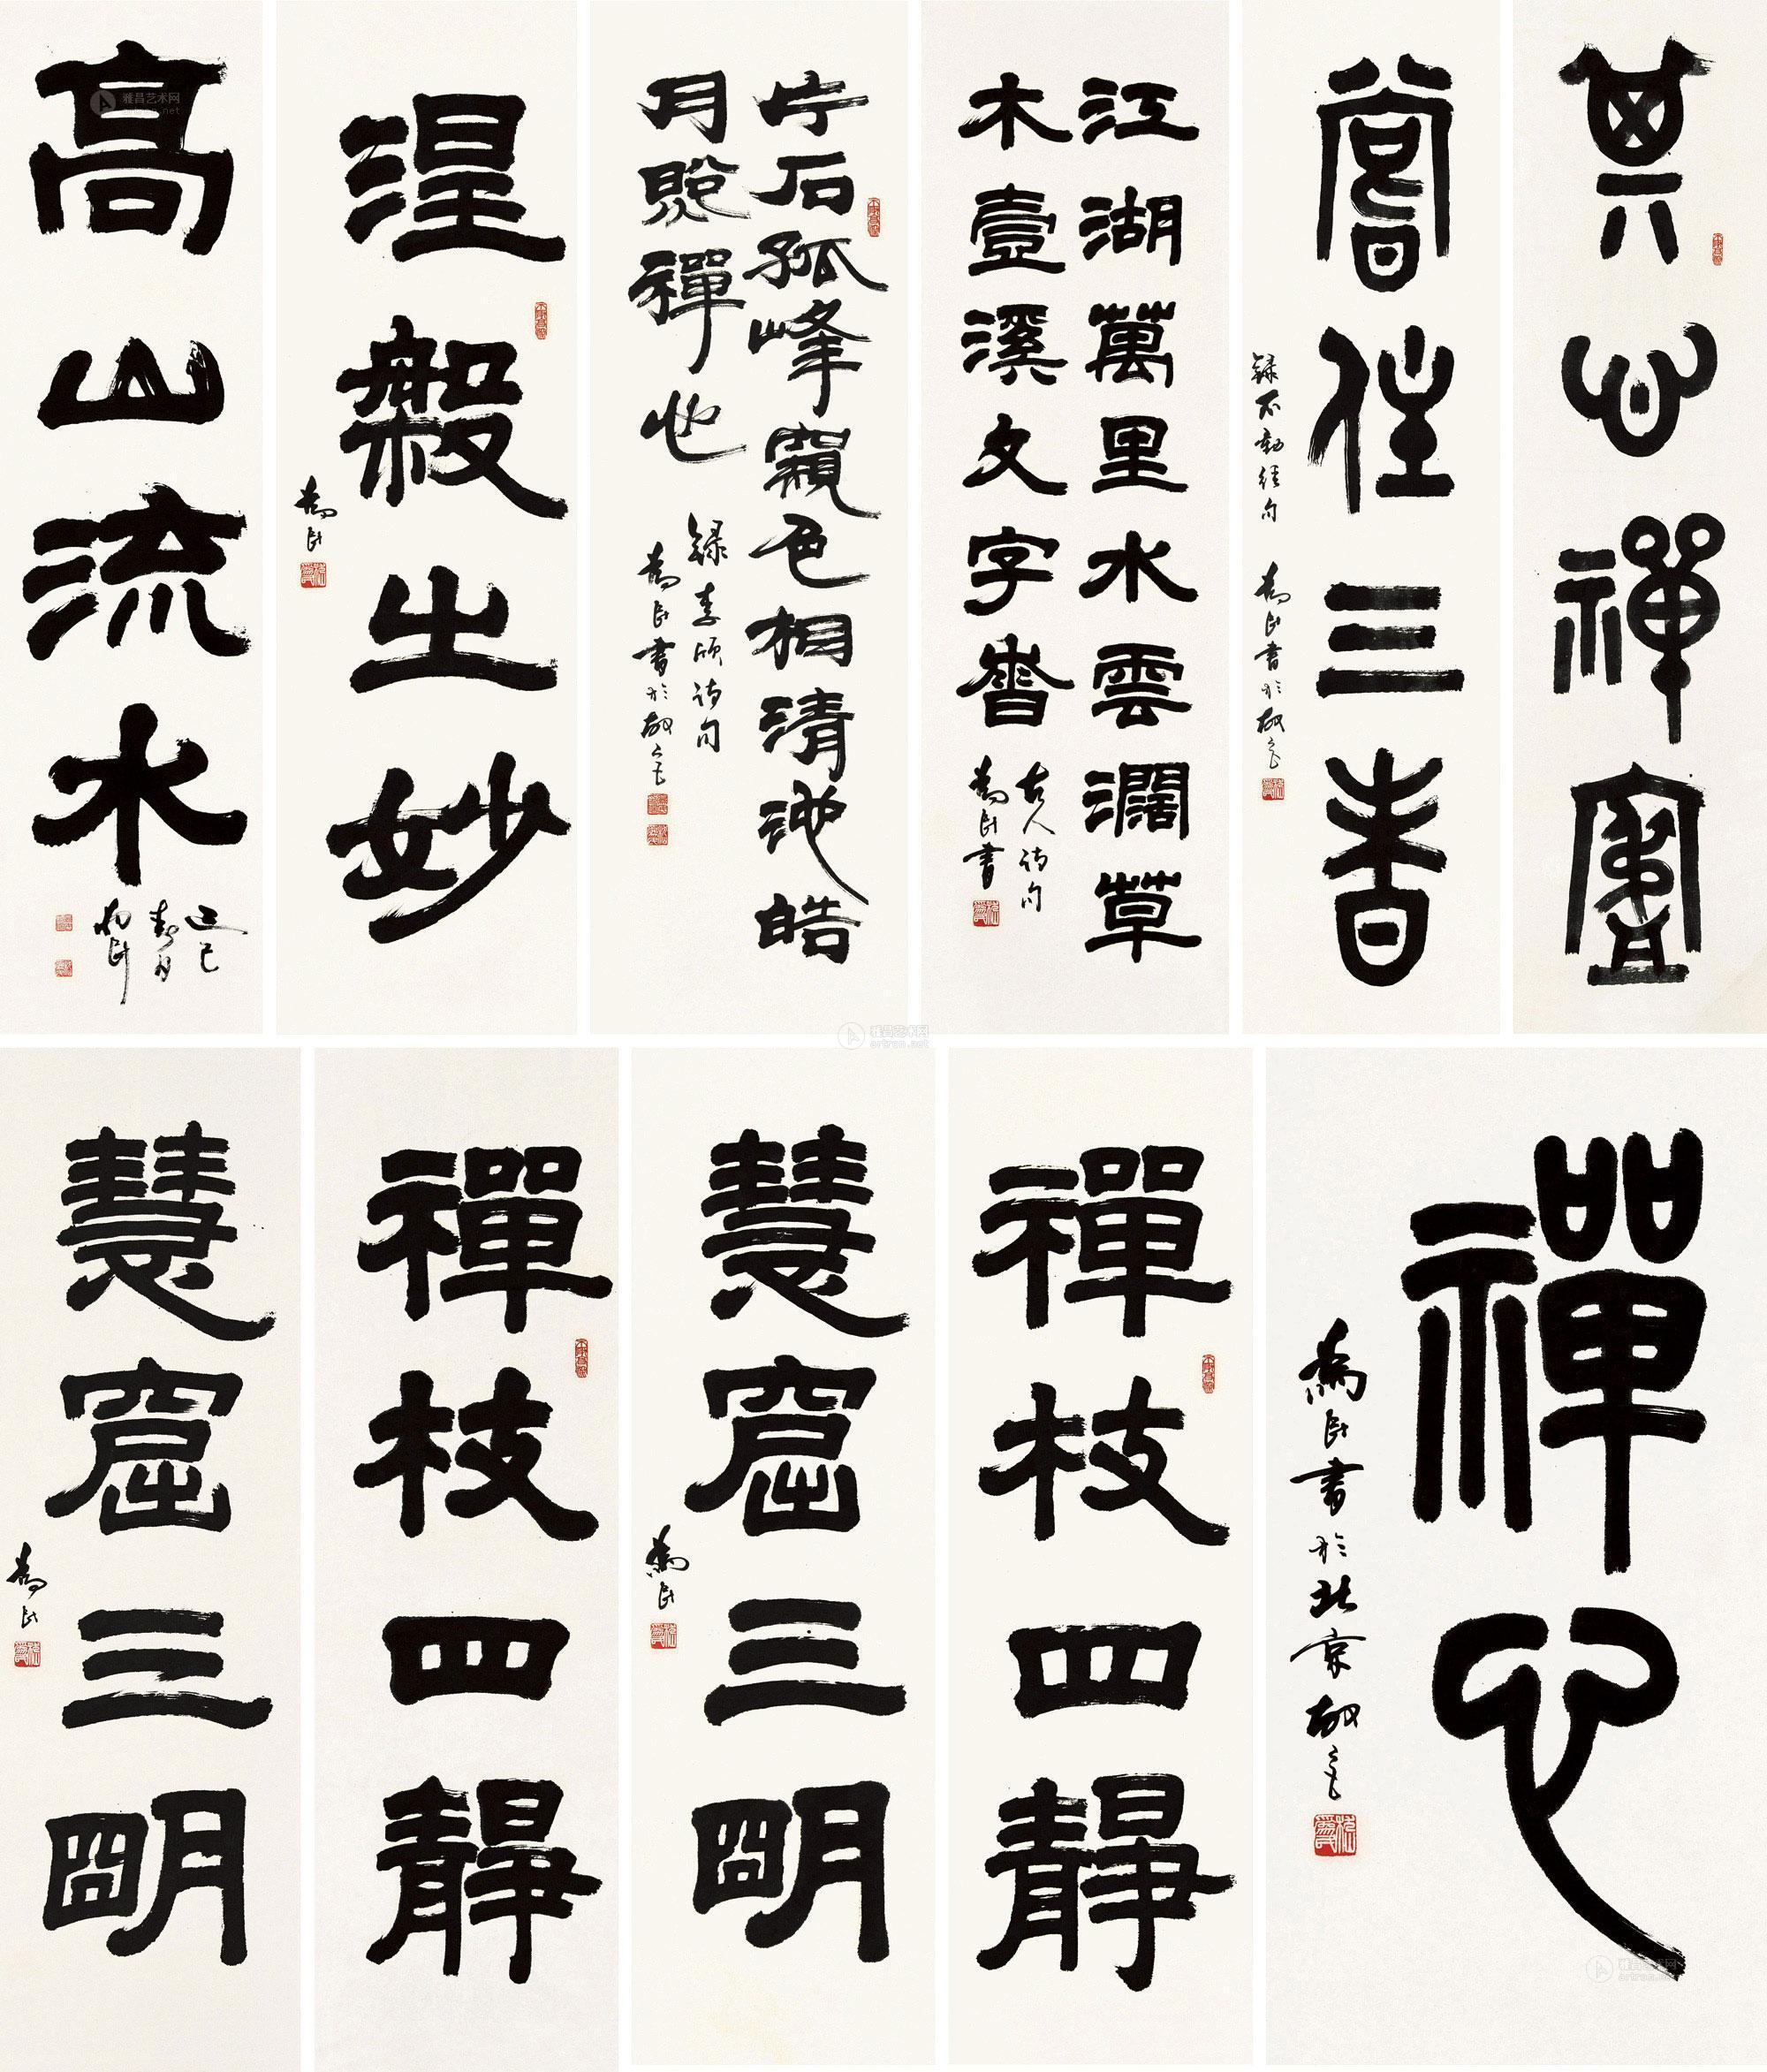 其心禪寂
嘗住三春
錄不動經句
為民書於
江湖萬里水雲濶草
木壹溪文字香
古人詩句
為民書
片石孤峰窺色相清池皓
月照禪心
錄李頎詩句
為民書於
涅槃之妙
為民
高山流水
為民
禪心
為民書於北京
禪枝四靜
慧窟三明
為民
禪枝四靜
慧窟三明
為民
雅昌艺术网
artron.net